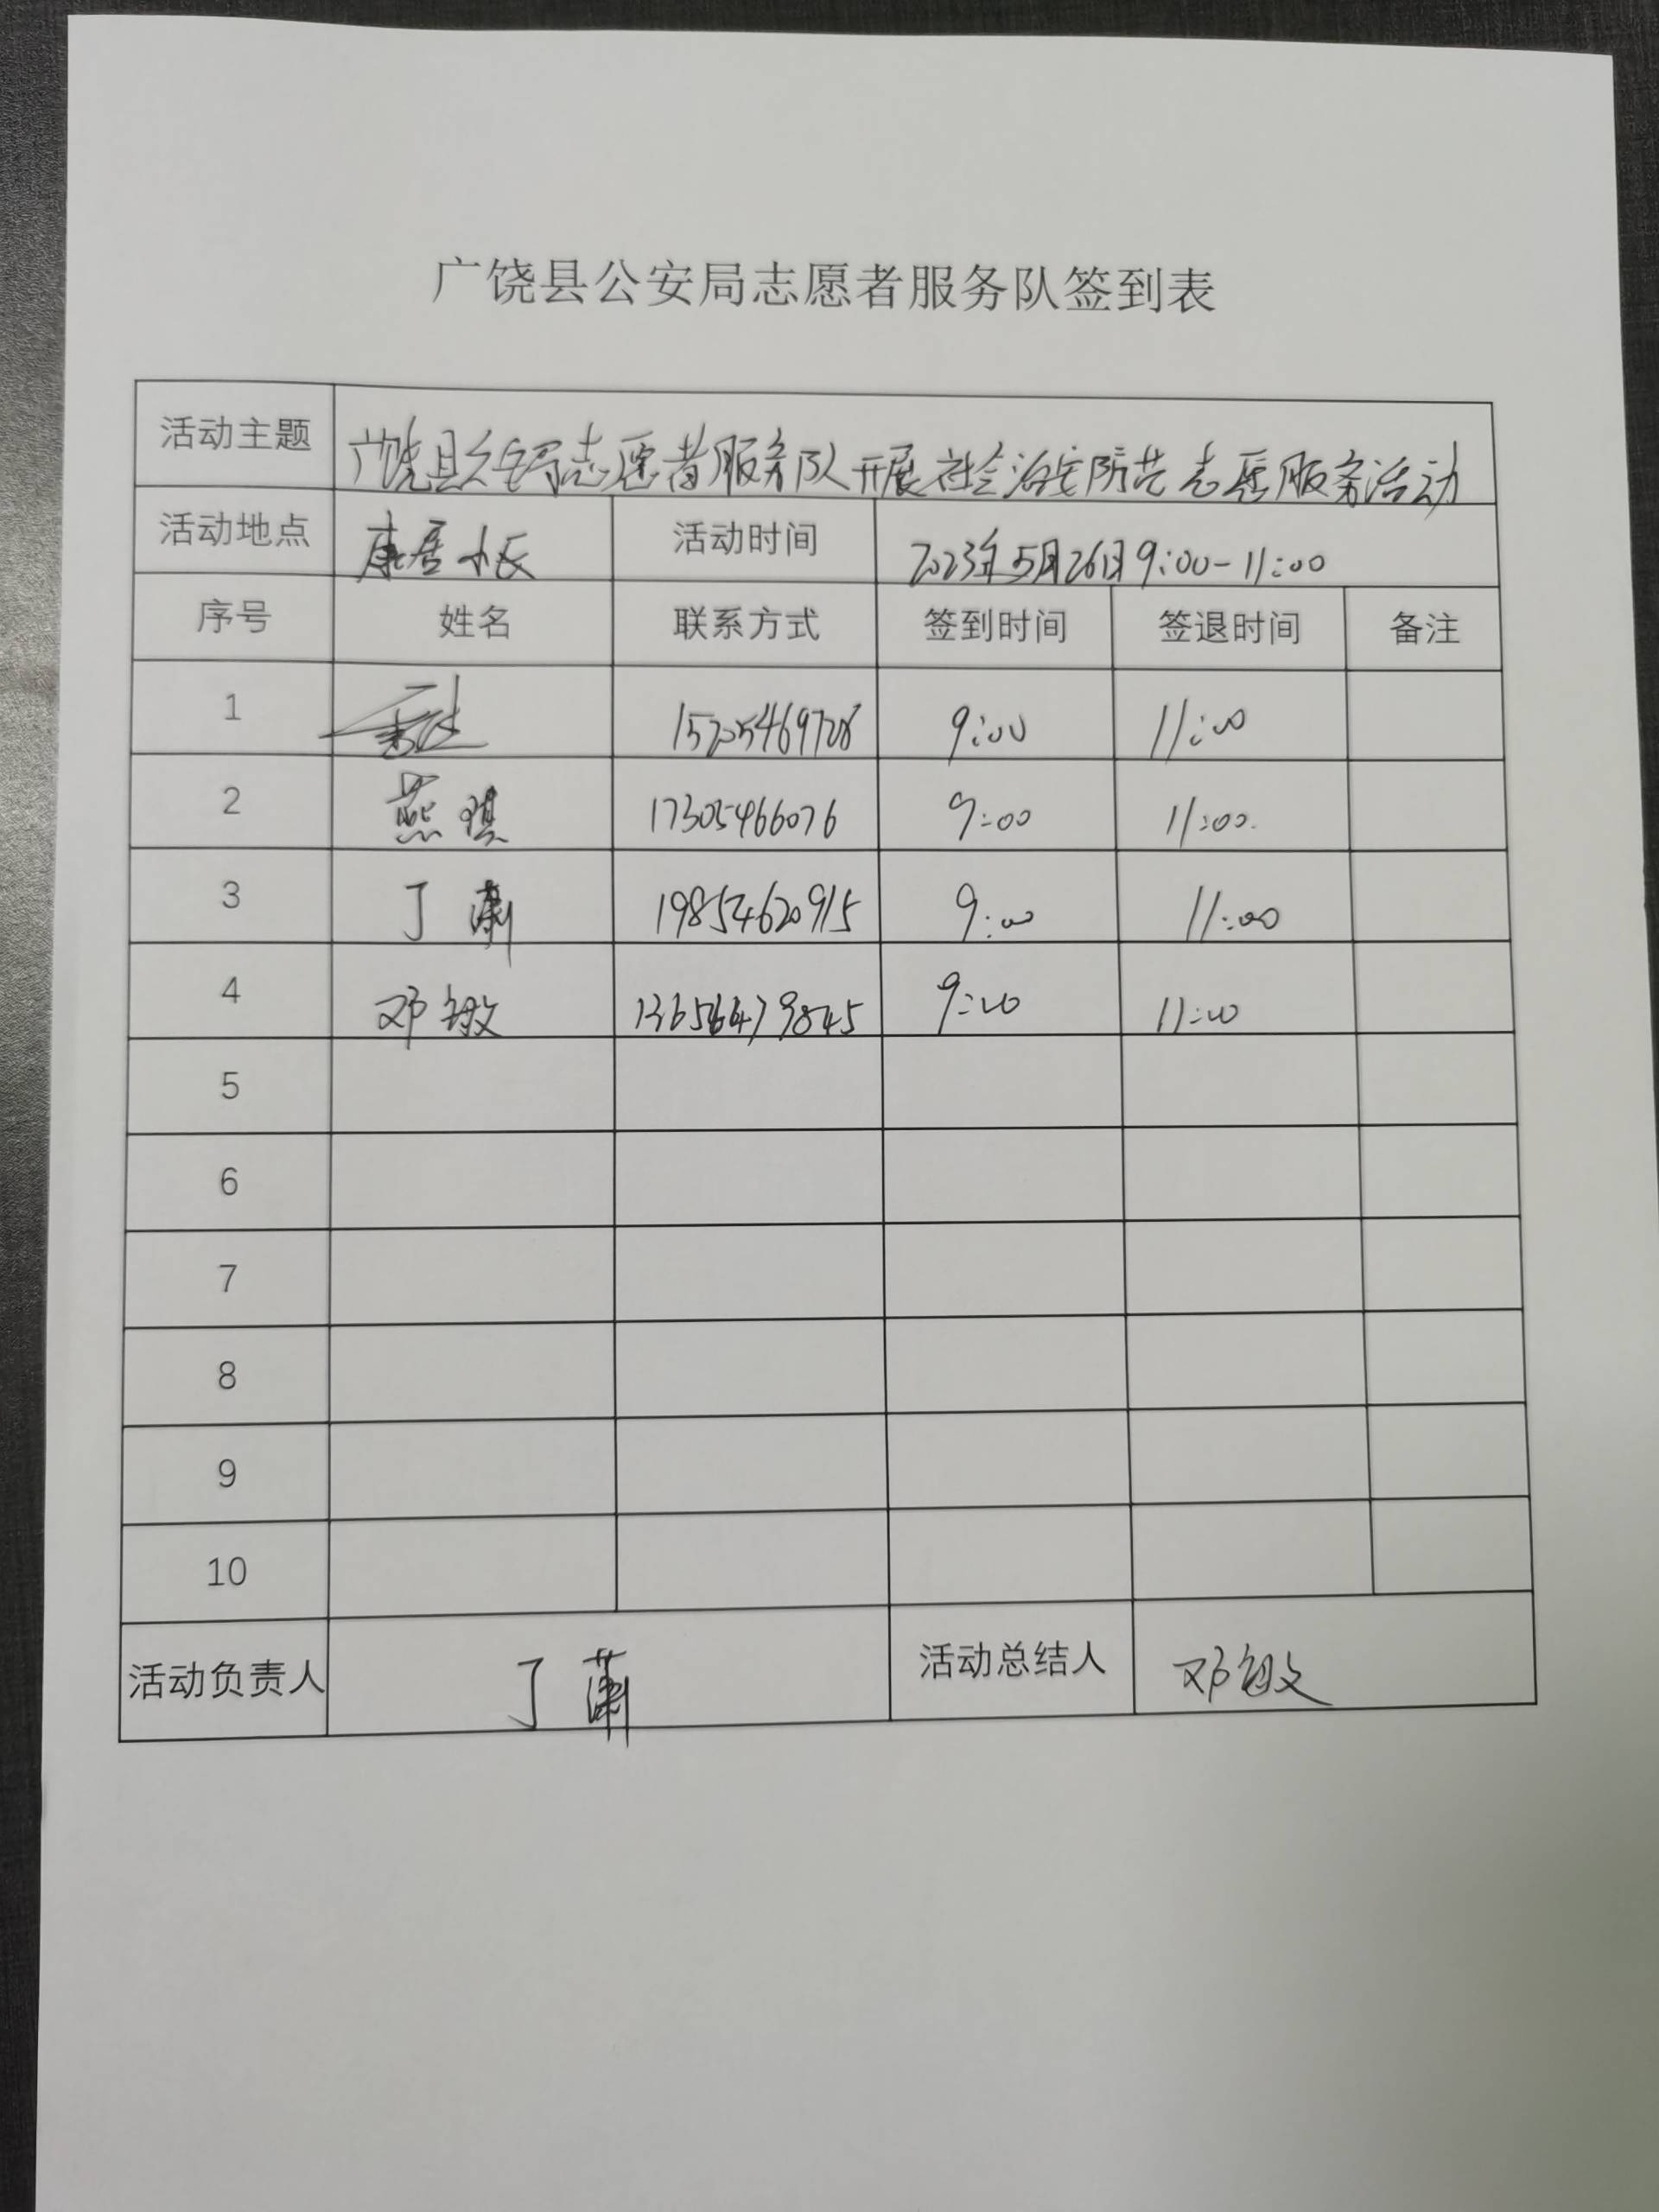 广饶县公安局志愿者服务队签到表
活动主题 广饶县公安局志愿者服务队开展社会治安防范志愿服务活动
活动地点 康居小区 活动时间 2023年5月26日9:00-11:00
序号 姓名 联系方式 签到时间 签退时间 备注
1 9:00 11:00
2 燕琪 17305466076 9:00 11:00
3 丁潇 19854620915 9:00 11:00
4 邓敏 13656479845 9:00 11:00
5
6
7
8
9
10
活动负责人 丁潇 活动总结人 邓敏